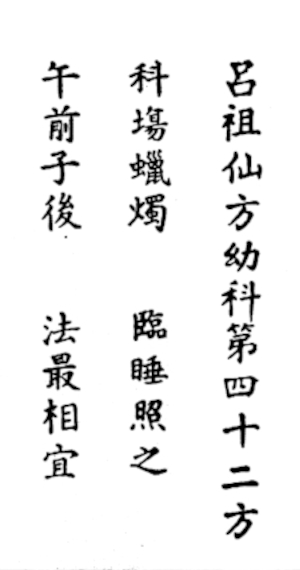 呂祖仙方幼科第四十二方
科塲蠟燭　臨睡照之
午前子後　法最相宜